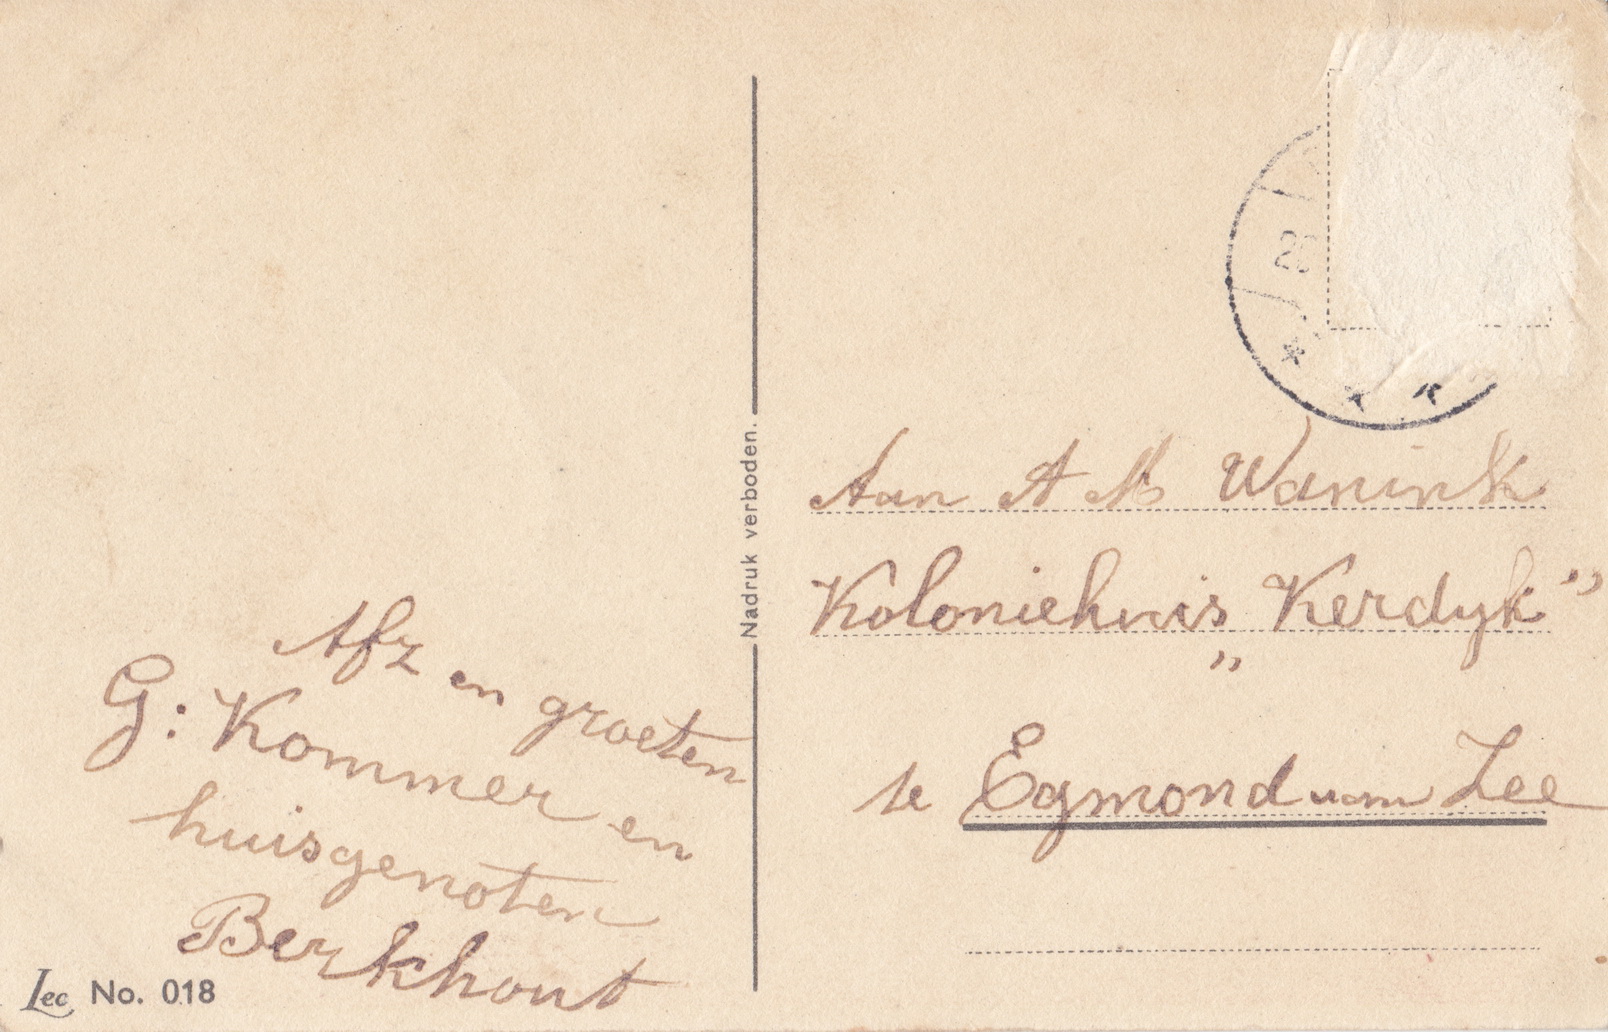 Afz en groeten
G: Kommer en
huisgenoten
Berkhout
Lee No. 018
Nadruk verboden.
Aan A M Wanink
Koloniehuis „Kerdyk”
te Egmond aan Zee